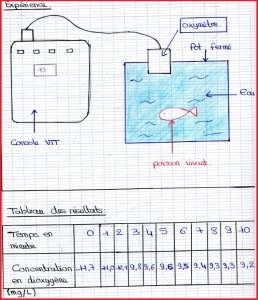 Expérience:
oxymètre
Pot fermé
Eau
Console VTT
poisson vivant.
Tableau des résultats:
Temps en minute 0 1 2 3 4 5 6 7 8 9 10
Concentration en dioxygène (mg/L) 11,7 9,8 9,6 9,5 9,5 9,4 9,3 9,3 9,2